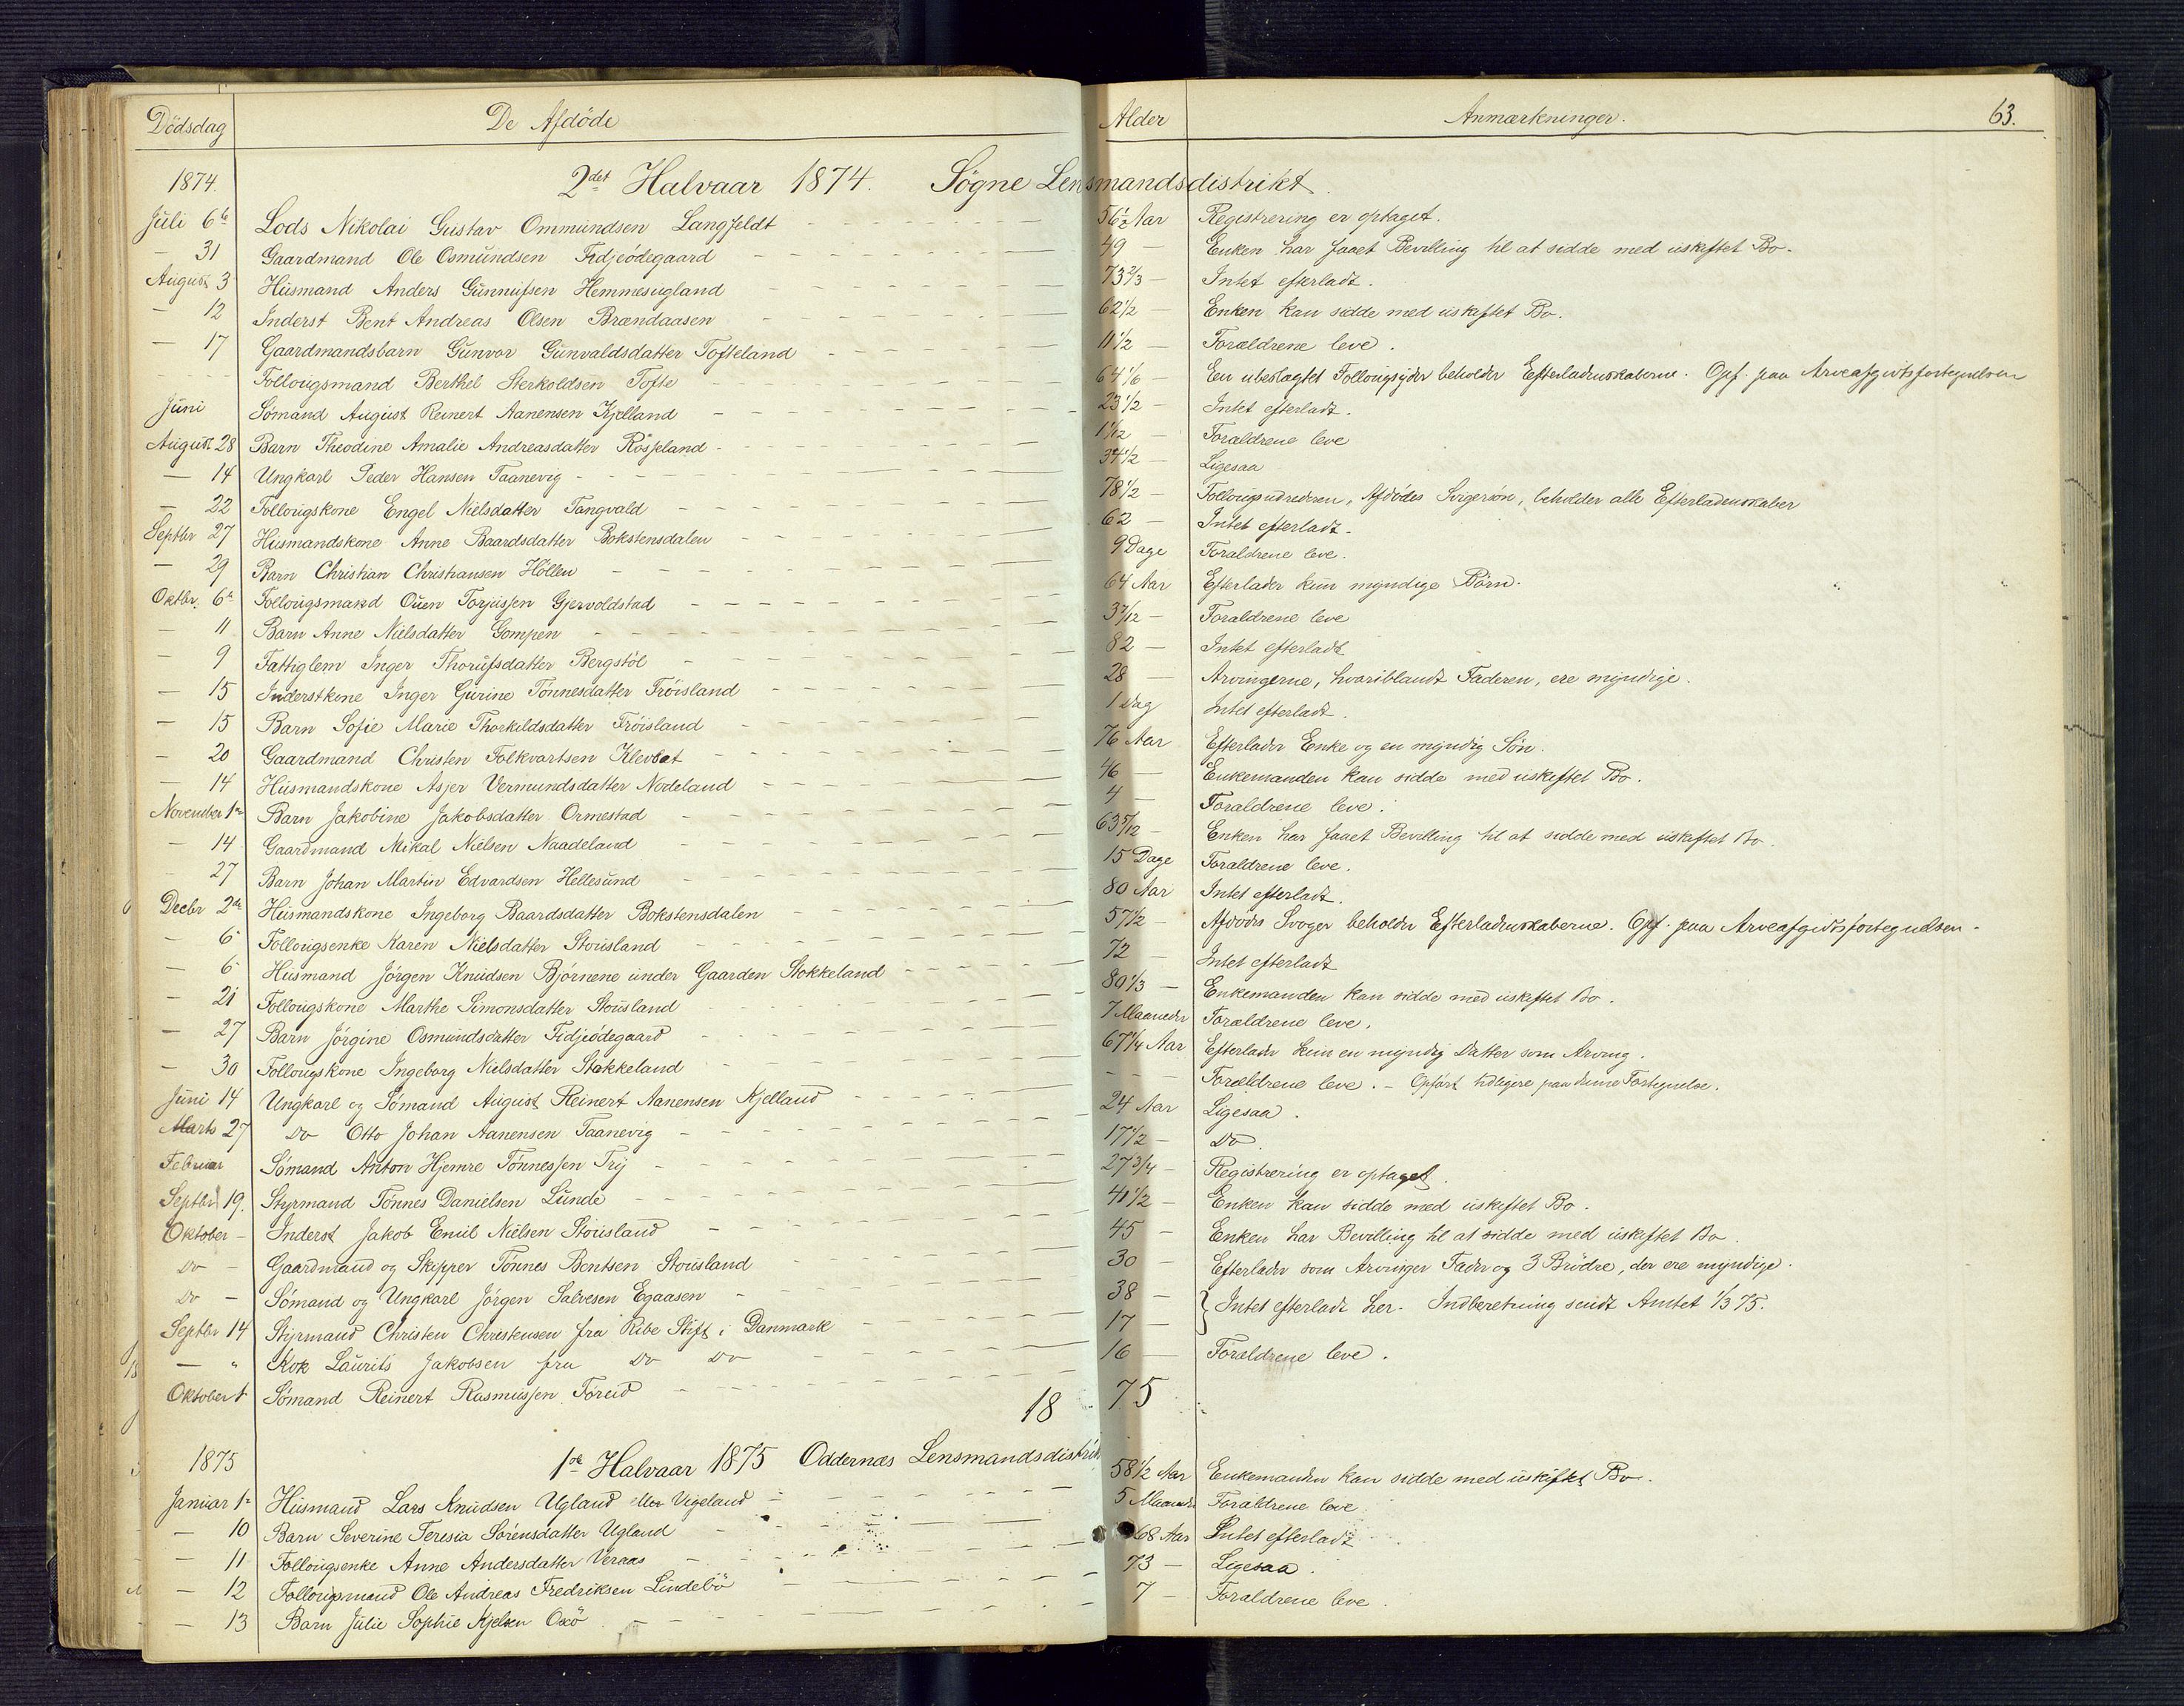 Dödsdag De Afdöde Alder Anmærkninger. 63.
1874. 2det Halvaar 1874. Sögne Lensmandsdistrikt.
Juli 6te Lods Nikolai Gustav Ommundsen Langfeldt 56½ Aar Registrering er optaget.
— 31 Gaardmand Ole Osmundsen Fidjeödegaard 49 — Enken har faaet Bevilling til at sidde med uskiftet Bo.
August 3 Husmand Anders Gunnufsen Hemmesugland 73 2/3 — Intet efterladt.
— 12 Inderst Bent Andreas Olsen Brændaasen 62 1/2 — Enken kan sidde med uskiftet Bo.
— 17 Gaardmandsbarn Gunvor Gunvaldsdatter Tofteland 11 1/2 — Forældrene leve.
Follougsmand Berthel Sterkoldsen Tofte 64 1/6 — En ubeslægtet Follougsyder beholder Efterladenskaberne. Opf. paa Arveafgiftsfortegnelsen
Juni Sömand August Reinert Aanensen Kjelland 23 1/2 — Intet efterladt.
August 28 Barn Theodine Amalie Andreasdatter Rösseland 1 1/12 — Forældrene leve
— 14 Ungkarl Peder Hansen Taanevig 34 1/2 — Ligesaa
— 22 Follougskone Engel Nielsdatter Tangvald 78 1/2 — Follougsudrederen, Afdödes Svigersön, beholder alle Efterladenskaber
Septbr 27 Husmandskone Anne Baardsdatter Bokstensdalen 62 — Intet efterladt.
— 29 Barn Christian Christiansen Höllen 9 Dage Forældrene leve.
Oktbr. 6te Follougsmand Ouen Torjussen Gjervoldstad 64 Aar Efterlader kun myndige Börn.
— 11 Barn Anne Nielsdatter Gompen 3 7/12 — Forældrene leve
— 9 Fattiglem Inger Thorufsdatter Bergstöl 82 — Intet efterladt
— 15 Inderstkone Inger Gurine Tönnesdatter Fröisland 28 — Arvingerne, hvoriblandt Faderen, ere myndige.
— 15 Barn Sofie Marie Thorkildsdatter Fröisland 1 Dag Intet efterladt.
— 20 Gaardmand Christen Folkvartsen Klevbet 76 Aar Efterlader Enke og en myndig Sön.
— 14 Husmandskone Asjer Vermundsdatter Nodeland 46 — Enkemanden kan sidde med uskiftet Bo.
November 1te Barn Jakobine Jakobsdatter Ormestad 4 — Forældrene leve.
— 14 Gaardmand Mikal Nielsen Naadeland 63 5/12 — Enken har faaet Bevilling til at sidde med uskiftet Bo.
27 Barn Johan Martin Edvardsen Hellesund 15 Dage Forældrene leve.
Decbr 2den Husmandskone Ingeborg Baardsdatter Bokstensdalen 80 Aar Intet efterladt.
— 6 Follougsenke Karen Nielsdatter Stousland 57 1/2 — Afdödes Svoger beholder Efterladenskaberne. Opf. paa Arveafgiftsfortegnelsen.
— 6 Husmand Jörgen Knudsen Björnene under Gaarden Stokkeland 72 — Intet efterladt
— 21 Follougskone Marthe Simonsdatter Stousland 80 1/3 — Enkemanden kan sidde med uskiftet Bo.
— 27 Barn Jörgine Osmundsdatter Fidjeödegaard 7 Maaneder Forældrene leve.
— 30 Follougskone Ingeborg Nielsdatter Stokkeland 67 1/4 Aar Efterlader kun en myndig Datter som Arving.
Juni 14 Ungkarl og Sömand August Reinert Aanensen Kjelland Forældrene leve. — Opfört tidligere paa denne Fortegnelse.
Marts 27 Do Otto Johan Aanensen Taanevig 24 Aar Ligesaa.
Februar Sömand Anton Hjemre Tönnessen Try 17 1/2 — Do
Septbr 19. Styrmand Tönnes Danielsen Lunde 27 3/4 — Registrering er optaget.
Oktober — Inderst Jakob Emil Nielsen Stousland 41 1/2 — Enken kan sidde med uskiftet Bo.
Do — Gaardmand og Skipper Tönnes Bentsen Stousland 45 — Enken har Bevilling til at sidde med uskiftet Bo.
Do — Sömand og Ungkarl Jörgen Salvesen Egaasen 30 — Efterlader som Arvinger Fader og 3 Brödre, der ere myndige.
Septbr 14 Styrmand Christen Christensen fra Ribe Stift i Danmark 38 — Intet efterladt her. Indberetning sendt Amtet 1/3 75.
— " Kok Laurits Jakobsen fra Do Do 17 —
Oktober 1 Sömand Reinert Rasmussen Föreid 16 — Forældrene leve.
18 75
1875 1ste Halvaar 1875 Oddernæs Lensmandsdistrik
Januar 1te Husmand Lars Knudsen Ugland eller Vigeland 58 1/2 Aar Enkemanden kan sidde med uskiftet Bo.
— 10 Barn Severine Teresia Sörensdatter Ugland 5 Maaneder Forældrene leve.
— 11 Follougsenke Anne Andersdatter Veraas 68 Aar Intet efterladt
— 12 Follougsmand Ole Andreas Fredriksen Lindebö 73 — Ligesaa.
— 13 Barn Julie Sophie Kjelsen Oxö 7 — Forældrene leve.